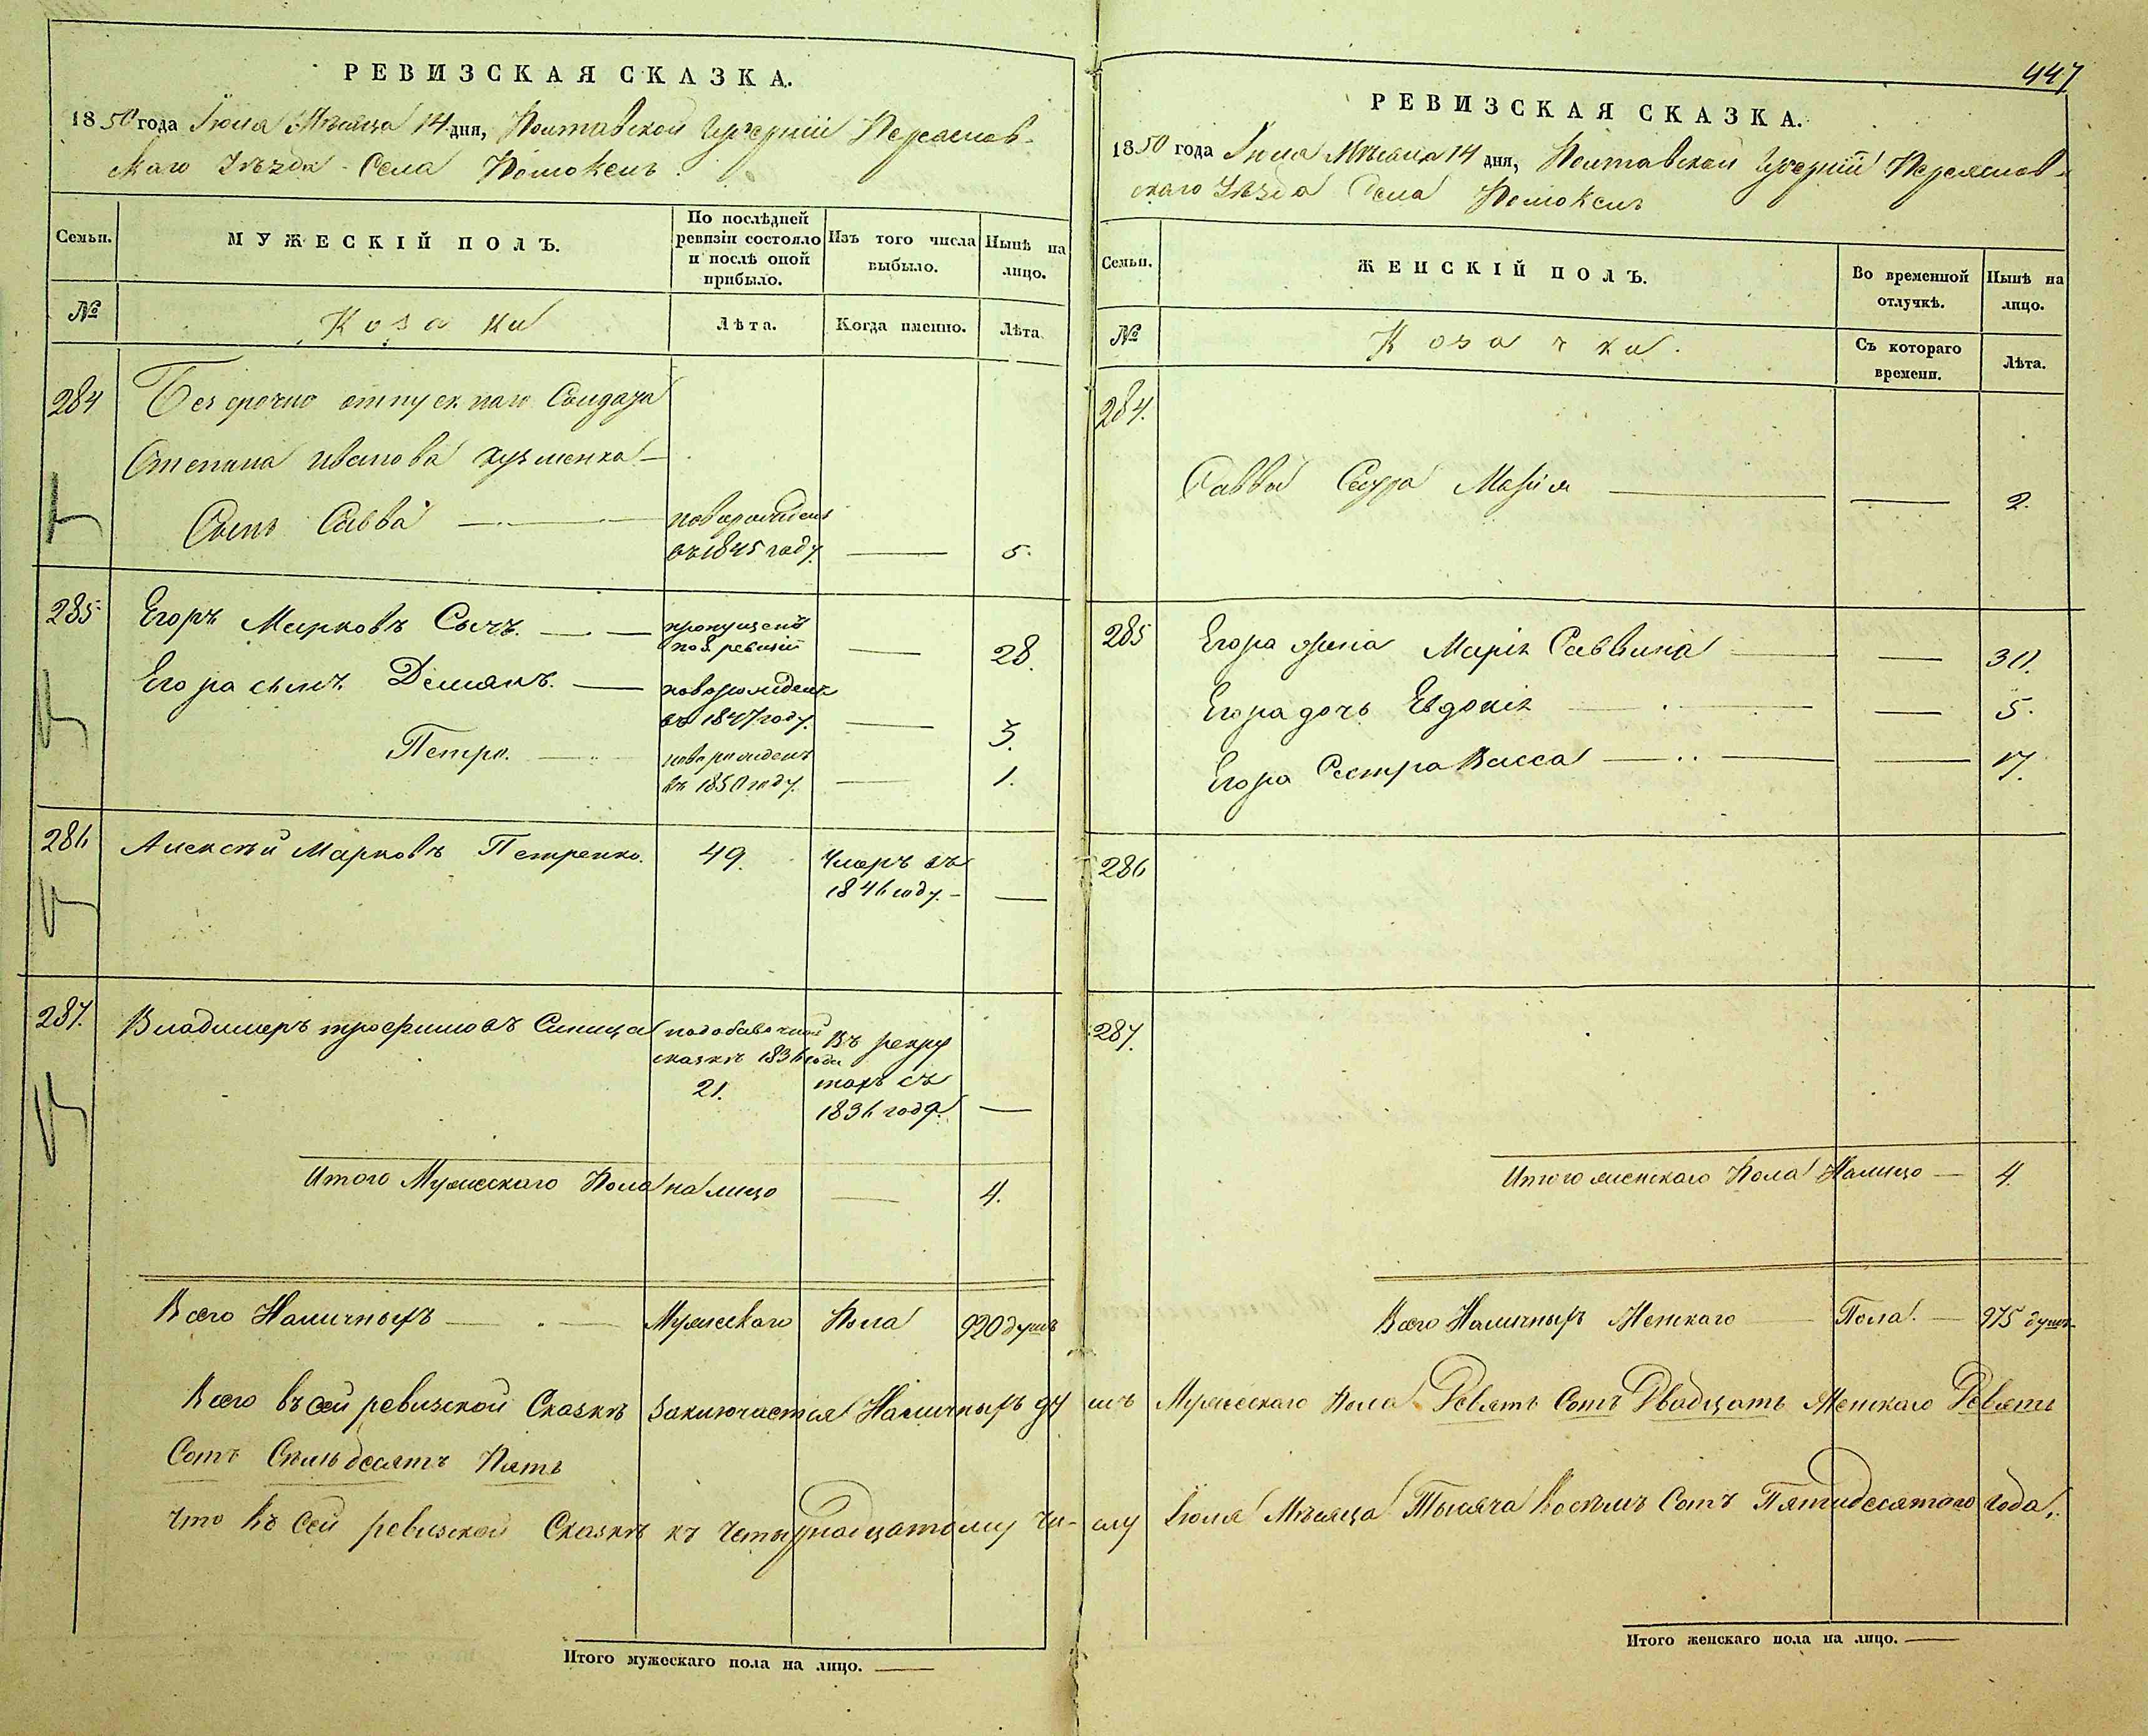 РЕВИЗСКАЯ СКАЗКА.
1850 года Іюля Мѣсяца 14 дня, Полтавской Губерніи Переяслав-
скаго Уѣзда Села Помоклъ
Семьи.
МУЖЕСКІЙ ПОЛЪ.
По послѣдней ревизіи состояло и послѣ оной прибыло.
Изъ того числа выбыло.
Нынѣ на лицо.
№
Козаки
Лѣта.
Когда именно.
Лѣта.
284
Безсрочно отпускнаго Солдата
Степана Иванова Кузменка —
Сынъ Савва —
новорожденъ
въ 1845 году.
—
5.
285
Егоръ Марковъ Сычъ. —
пропущенъ
по 8. ревизіи
—
28.
Егора сынъ Демянъ. —
новорожденъ
въ 1847 году.
—
3.
Петръ. —
новорожденъ
въ 1850 году.
—
1.
286
Алексѣй Марковъ Петренко.
49.
Умеръ въ
1846 году. —
—
287.
Владимеръ Трофимовъ Синица
по добавочной
сказкѣ 1836 года
21.
Въ рекру
тахъ съ
1836 года.
—
Итого Мужескаго Пола на лицо — 4.
Всего Наличныхъ — Мужескаго Пола 920 душъ
447
РЕВИЗСКАЯ СКАЗКА.
1850 года Іюля Мѣсяца 14 дня, Полтавской Губерніи Переяслав-
скаго Уѣзда Села Помоклъ
Семьи.
ЖЕНСКІЙ ПОЛЪ.
Во временной отлучкѣ.
Нынѣ на лицо.
№
Козачки.
Съ котораго времени.
Лѣта.
284.
Саввы Сестра Марія — — 2.
285
Егора жена Марія Саввина — — 30.
Егора дочь Евдокія — — 5.
Егора Сестра Васса — — 17.
286
287.
Итого женскаго Пола Налицо — 4.
Всего Наличныхъ Женскаго — Пола. — 975 душъ
Всего въ сей ревизской Сказкѣ заключается Наличныхъ душъ Мужескаго Пола Девять Сотъ Двадцать Женскаго Девять
Сотъ Семьдесятъ Пять
Что въ Сей ревизской Сказкѣ къ Четырнадцатому Числу Іюля Мѣсяца Тысяча Восемь Сотъ Пятидесятого года,
Итого мужескаго пола на лицо. —
Итого женскаго пола на лицо. —